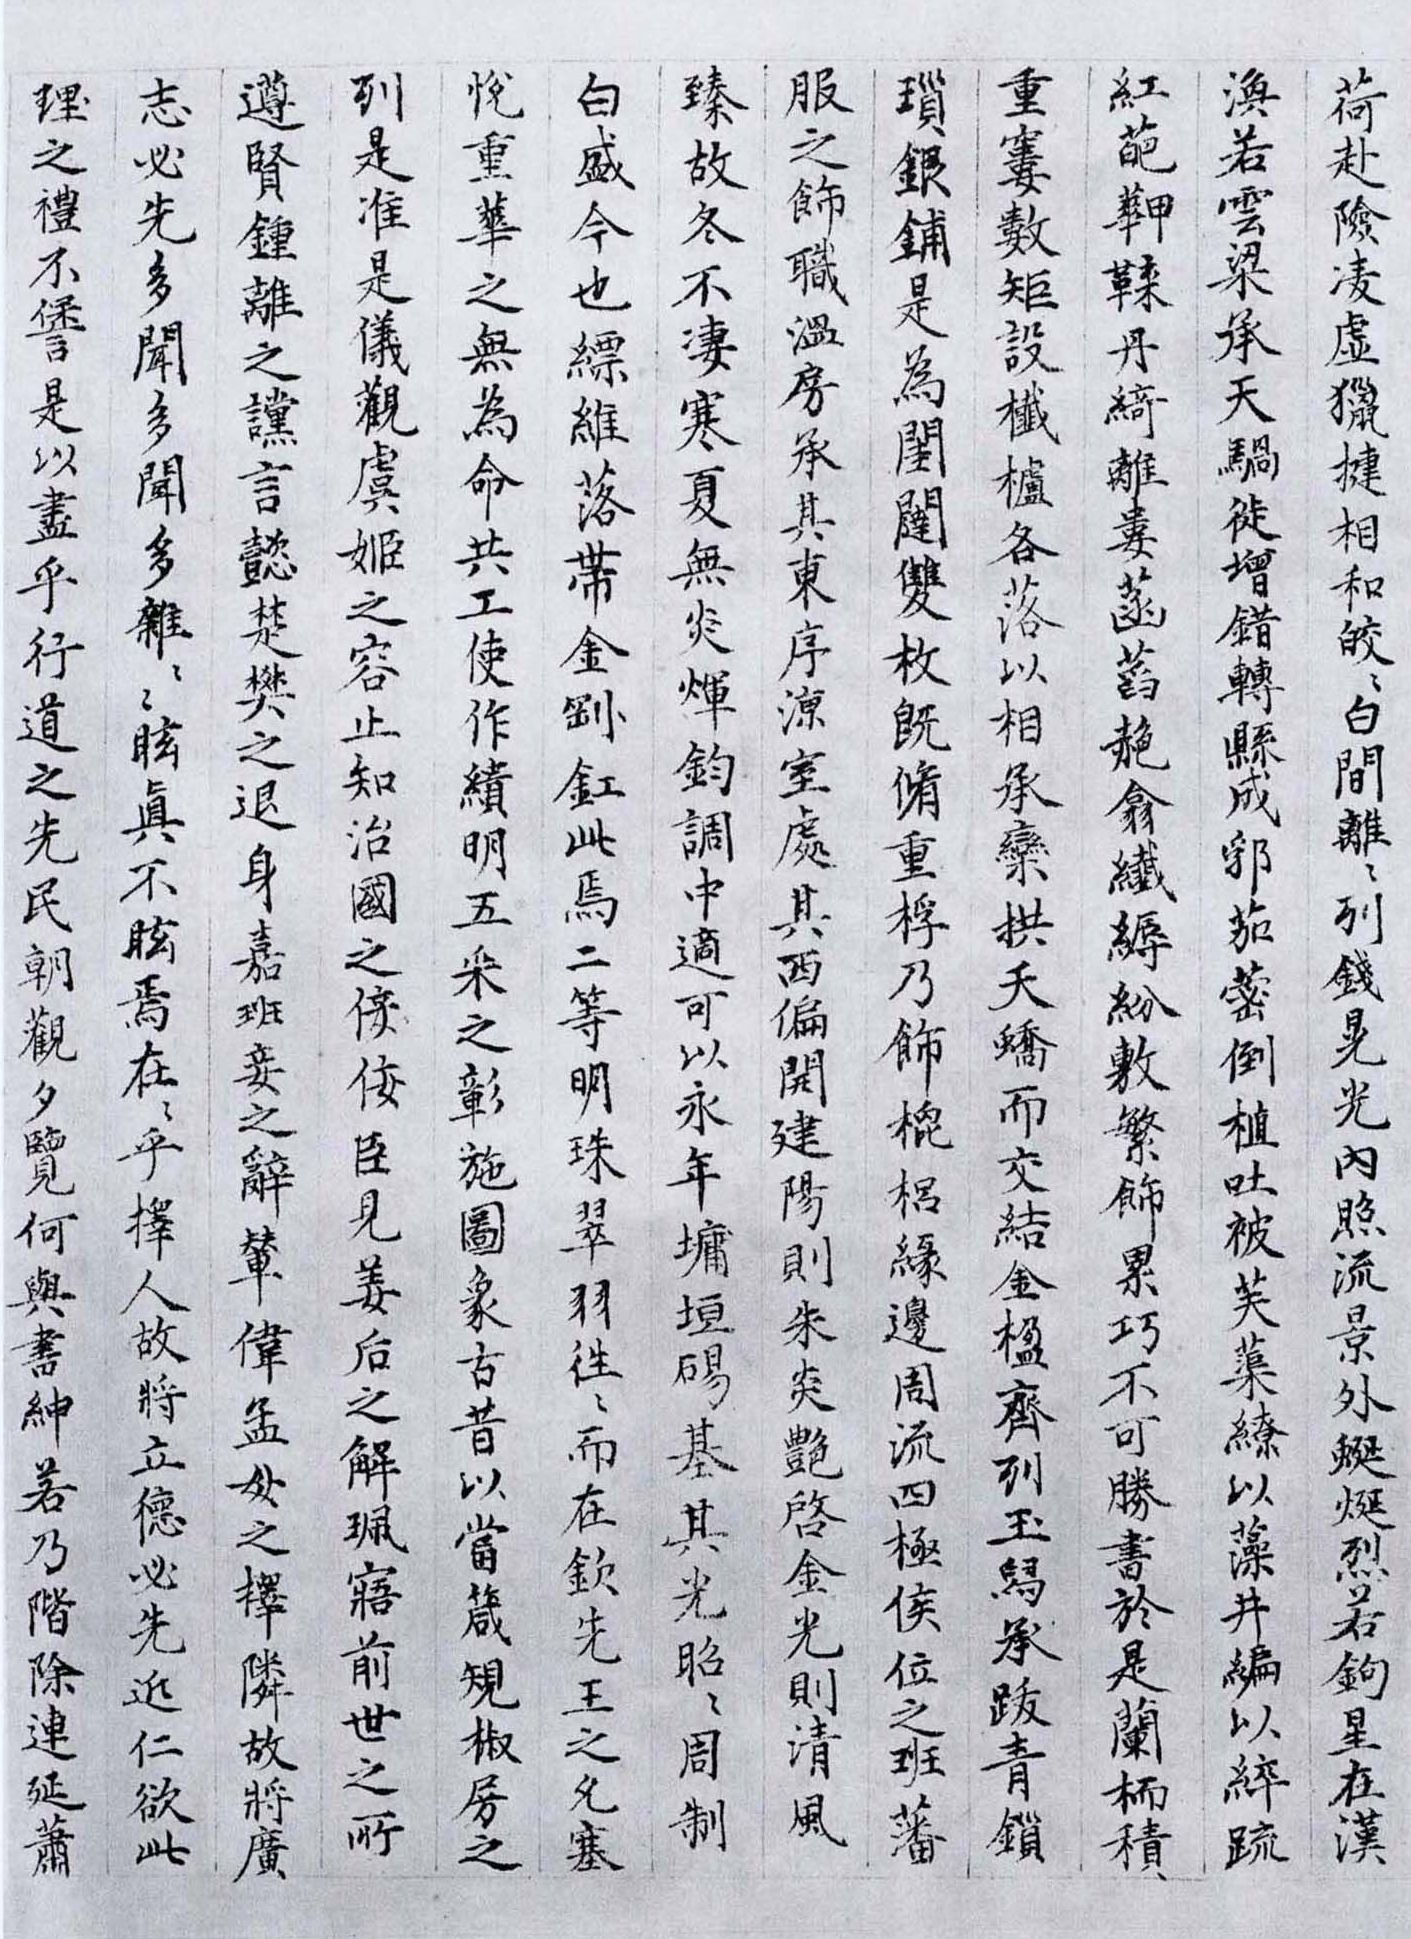 荷赴險凌虛獵揵相和皎〻白間離〻列錢晃光內照流景外䗺烻烈若鉤星在漢
渙若雲梁承天騧徙增錯轉縣成郭茄蔤倒植吐被芙蕖繚以藻井編以綷疏
紅葩䪞鞣丹綺離婁菡萏赩翕纖縟紛敷繁飾累巧不可勝書於是蘭栭積〻
重窶數矩設櫼櫨各落以相承欒拱夭蟜而交結金楹齊列玉舄承跋青鎖
瑣銀鋪是為閨闥雙枚既脩重桴乃飾槐梠緣邊周流四極侯位之班藩
服之飾職溫房承其東序涼室處其西偏開建陽則朱炎艷啓金光則清風
臻故冬不凄寒夏無炎煇鈞調中適可以永年墉垣碭基其光昭〻周制
白盛今也縹維落帶金劉釭此焉二等明珠翠羽往〻而在欽先王之允塞
悅重華之無為命共工使作繢明五采之彰施圖象古昔以當箴規椒房之
列是准是儀觀虞姬之容止知治國之傍佞臣見姜后之解珮寤前世之所
遵賢鍾離之讜言懿楚樊之退身嘉班妾之辭輦偉孟女之擇隣故將廣
志必先多聞多聞多雜〻〻眩真不眩焉在〻乎擇人故將立德必先近仁欲此
理之禮不諐是以盡乎行道之先民朝觀夕覽何與書紳若乃階除連延蕭